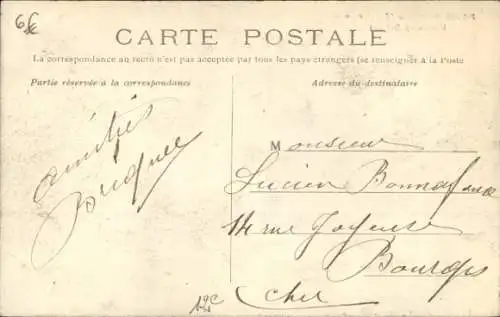 6€
CARTE POSTALE
La correspondance au recto n'est pas acceptée par tous les pays étrangers (se renseigner à la Poste
Partie réservée à la correspondance
Adresse du destinataire
amitiés
Monsieur
Lucien
14 rue Joyeuse
Bourges
Cher